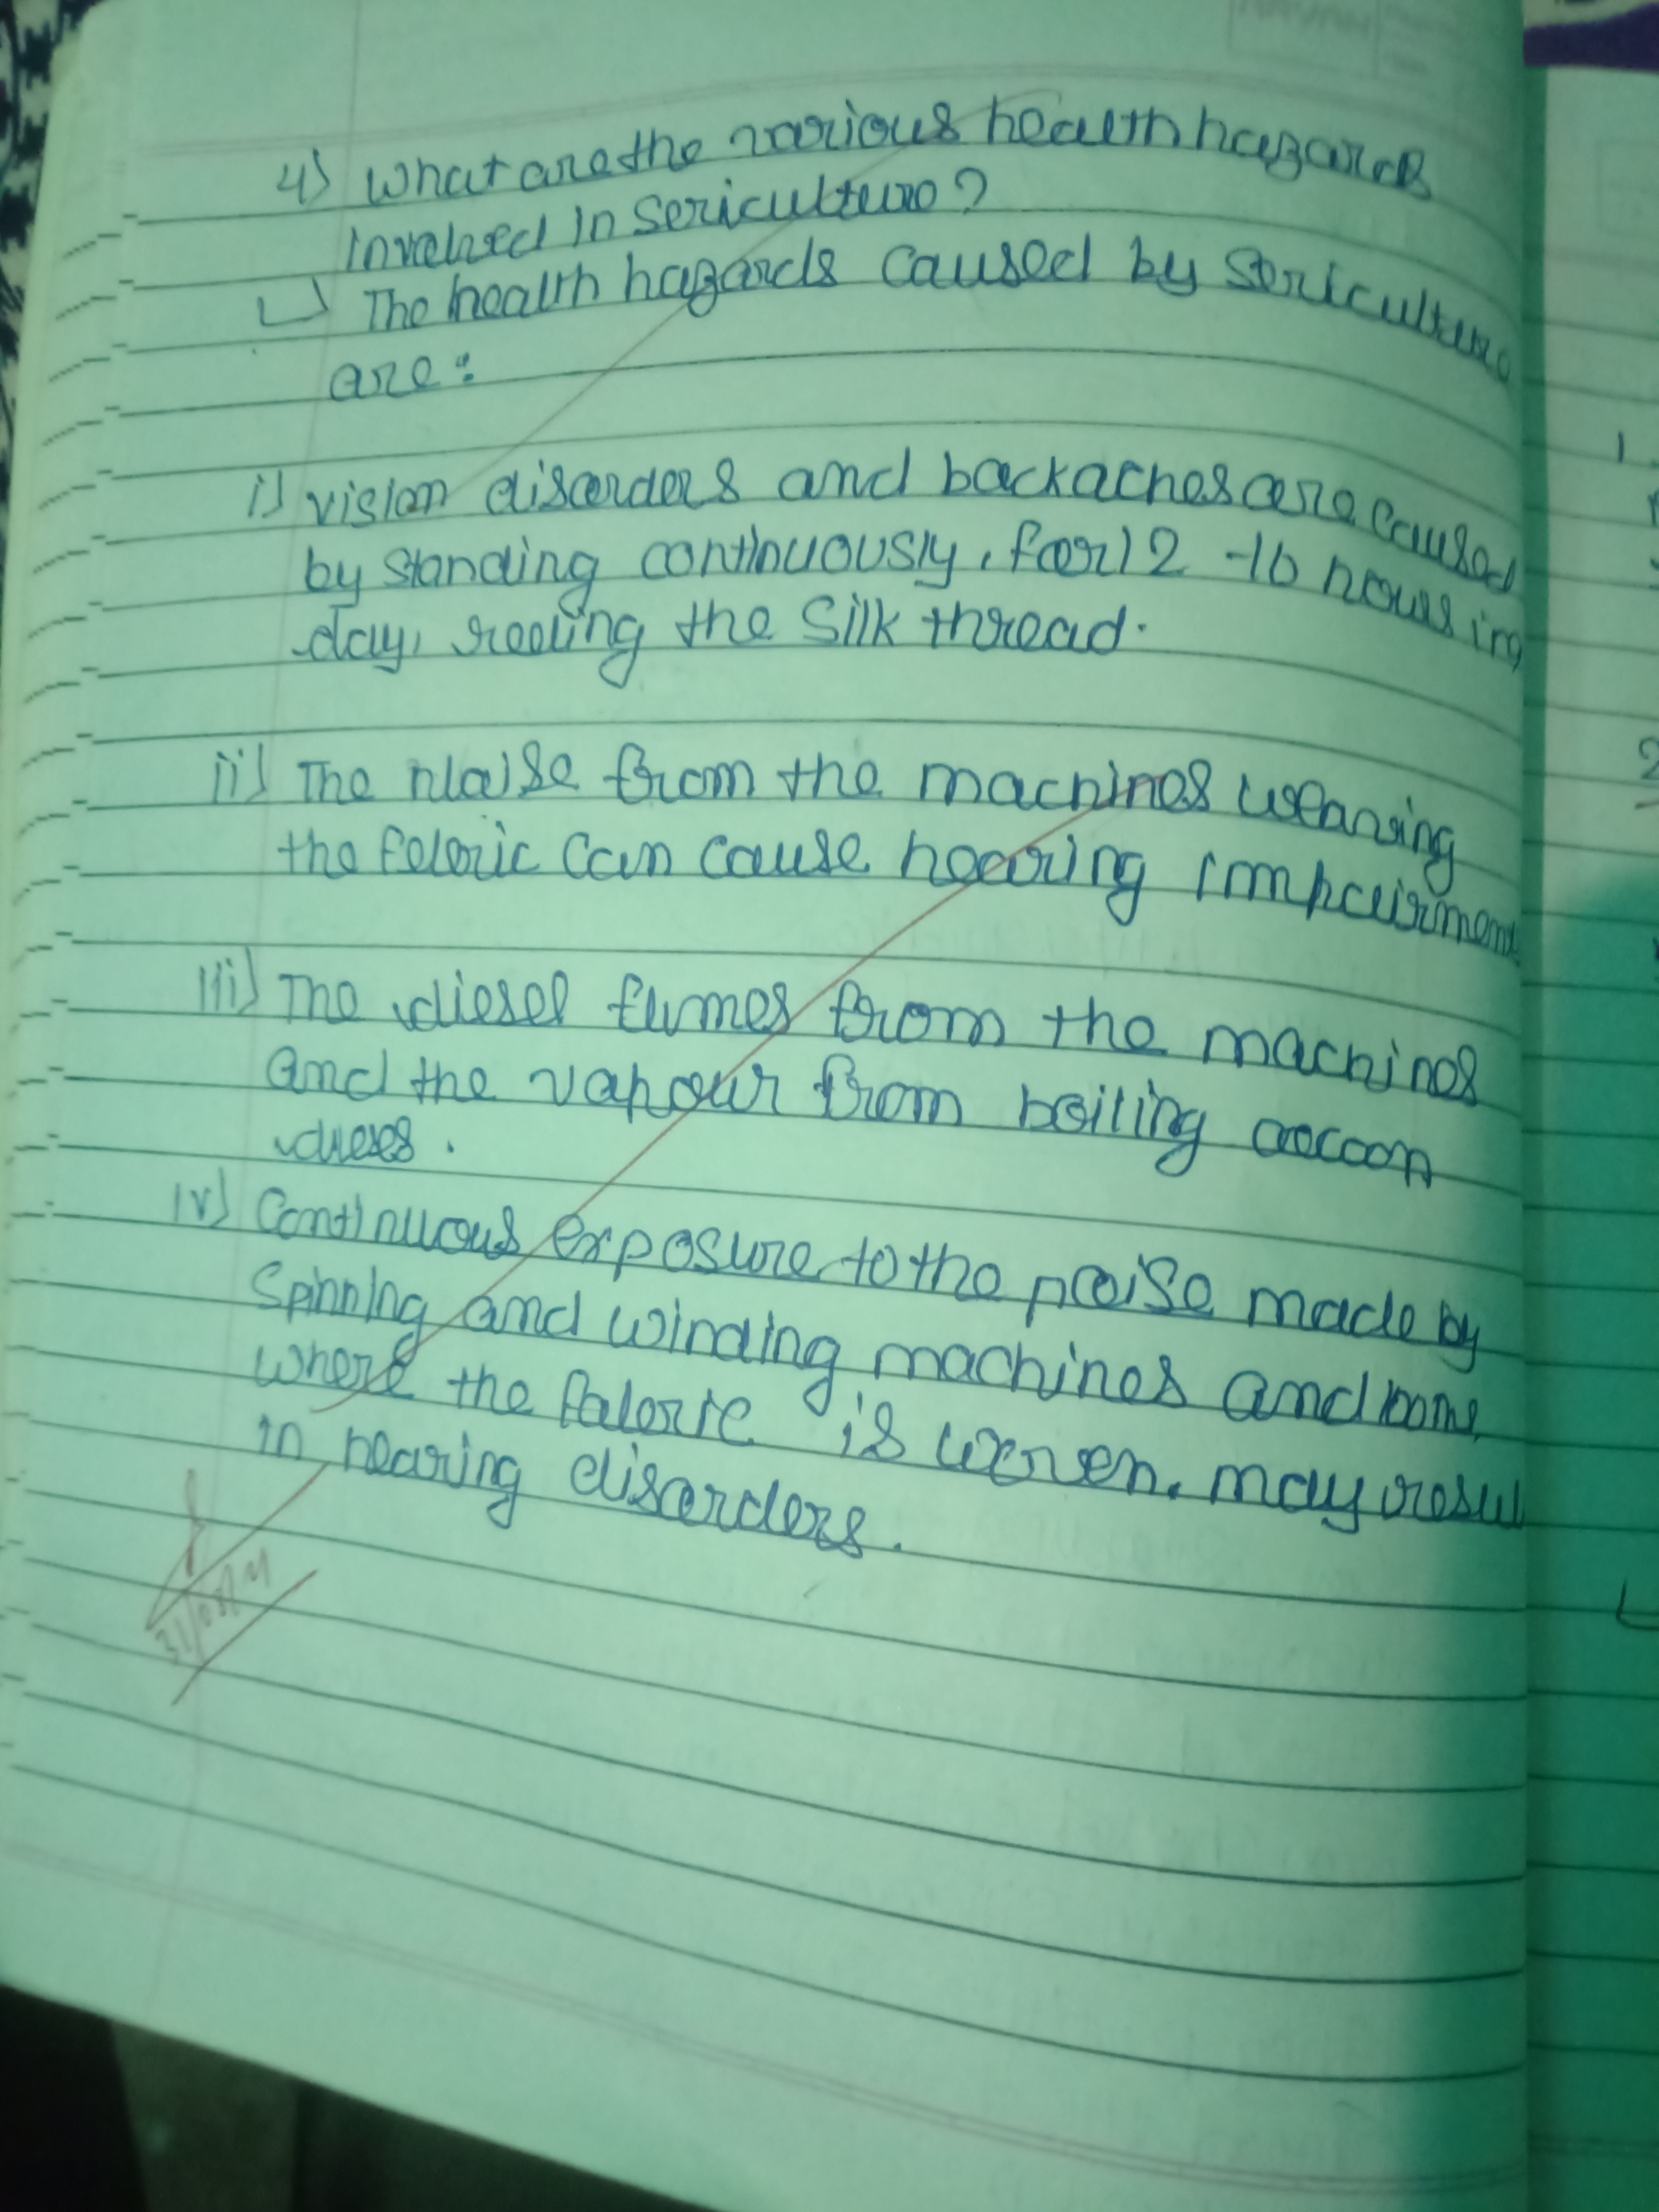 4) What are the various health hazards
involved in Sericulture?
The health hazards caused by Sericulture
are:
i) vision disorders and backaches are caused
by standing continuously, for 12 -16 hours in
day, reeling the silk thread.
ii) The noise from the machines weaving
the fabric can cause hearing impairment
iii) The diesel fumes from the machines
and the vapour from boiling cocoon
iv) Continuous exposure to the noise made by
Spinning and winding machines and
where the fabric is woven. may resul
in hearing disorders.